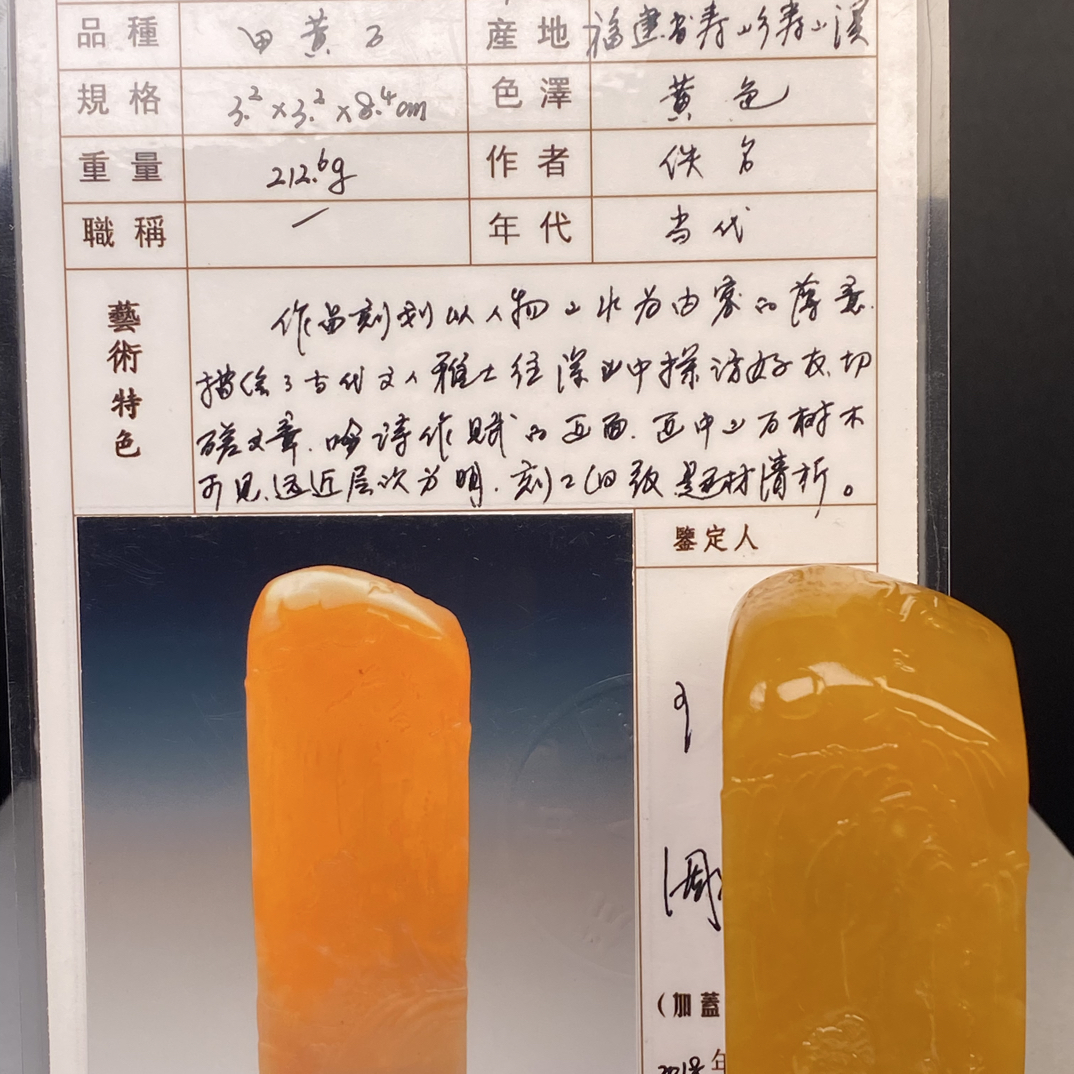 品種 田黄石 産地 福建省寿山乡寿山溪
規格 3.2×3.2×8.4cm 色澤 黄色
重量 212.6g 作者 佚名
職稱 一 年代 当代
藝術特色
作品刻划以人物山水为内容的薄意.
描绘了古代文人雅士往深山中探访好友.切
磋文章.吟诗作赋的画面.画中山石树木
可见.远近层次分明.刻工细致.题材清析。
鑒定人
周
(加蓋
2018年